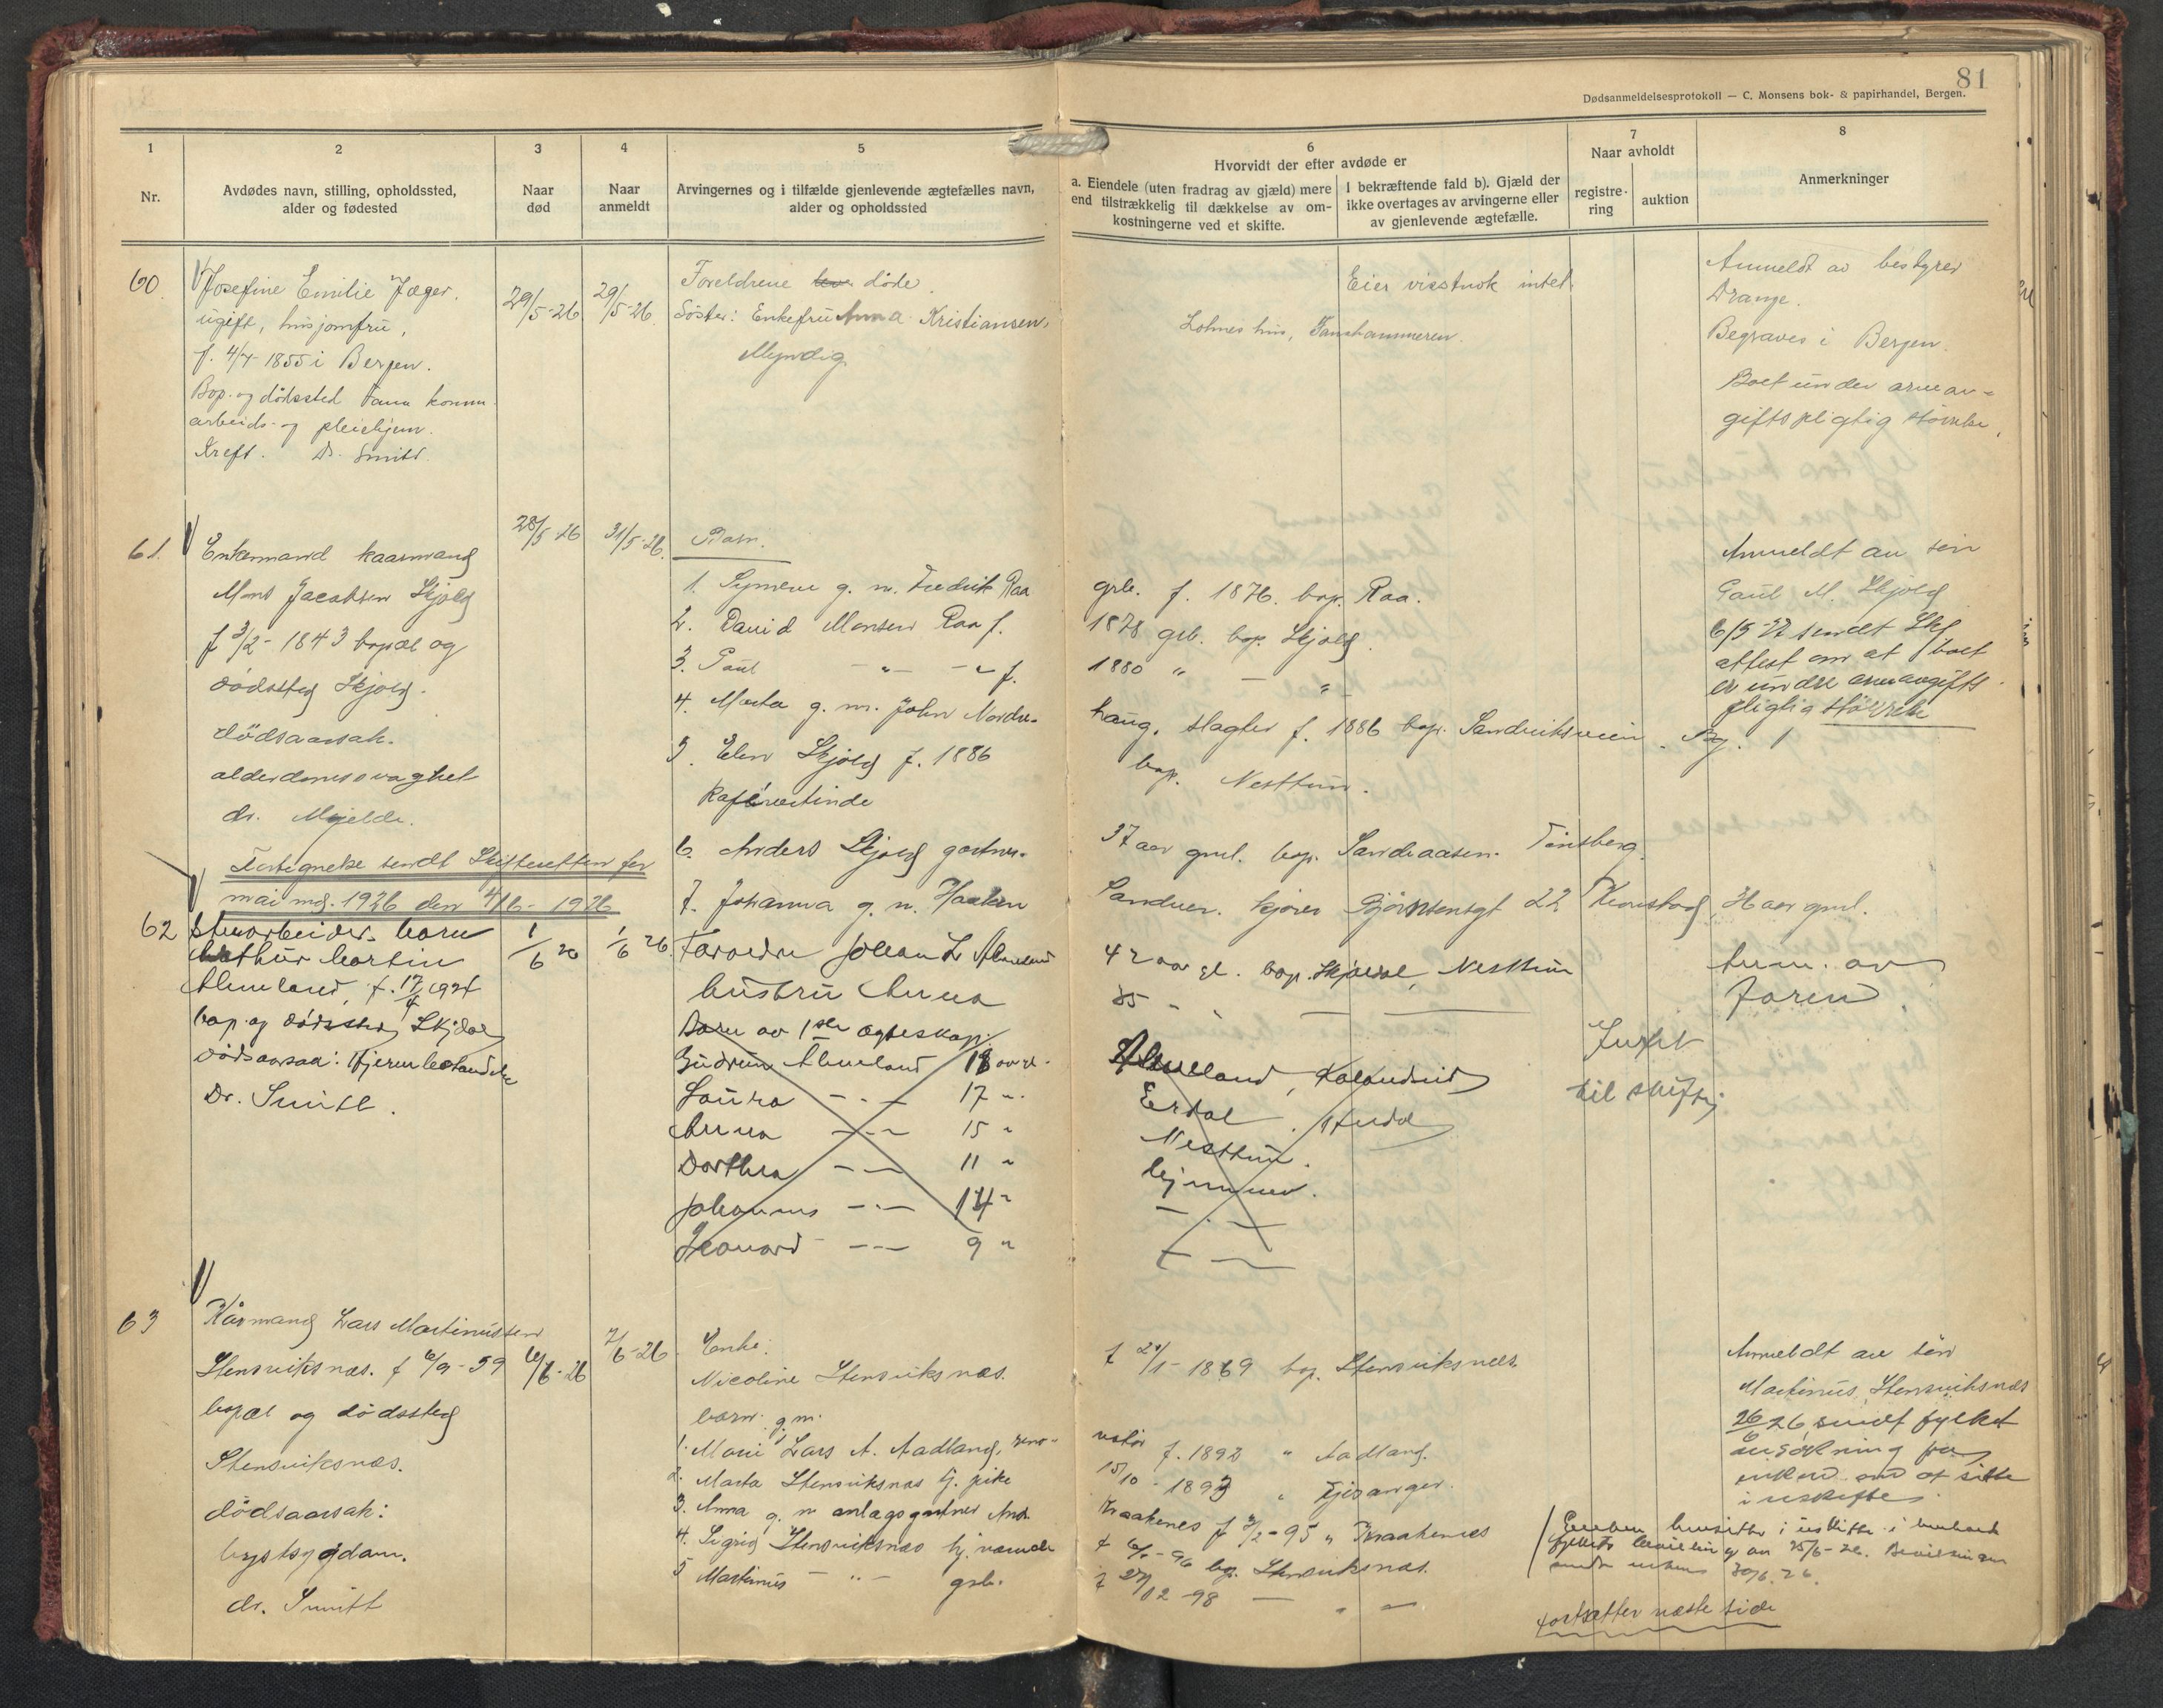 81
Dødsanmeldelsesprotokoll — C. Monsens bok- & papirhandel, Bergen.
1
2
3
4
5
6
7
8
Nr.
Avdødes navn, stilling, opholdssted,
alder og fødested
Naar
død
Naar
anmeldt
Arvingernes og i tilfælde gjenlevende ægtefælles navn,
alder og opholdssted
Hvorvidt der efter avdøde er
a. Eiendele (uten fradrag av gjæld) mere
end tilstrækkelig til dækkelse av om-
kostningerne ved et skifte.
I bekræftende fald b). Gjæld der
ikke overtages av arvingerne eller
av gjenlevende ægtefælle.
Naar avholdt
registre-
ring
auktion
Anmerkninger
60.
Josefine Emilie Jæger.
ugift, husjomfru,
f. 4/4 1855 i Bergen.
Bop. og dödssted Fana komm.
arbeids- og pleiehjem.
Kreft. Dr. Smitt.
29/5-26
29/5-26.
Foreldrene döde.
Söster: Enkefru Anna Kristiansen,
Myndig
Eier visstnok intet.
Lohnes hus,
Anmeldt av bestyrer
Drange.
Begraves i Bergen.
Boet under arveav-
giftspligtig störrelse.
61.
Enkemand kaarmand
Mons Jacobsen Skjold
f 3/2-1843 bopæl og
dödssted Skjold.
dödsaarsak.
alderdomssvaghet
dr. Mjelde.
28/5-26
31/5-26.
Barn.
1. g. m. Fredrik Raa
2. David Monsen Raa f.
3. Paul - " - - " f.
4. Marta g. m. John Nordre-
5. Elen Skjold f. 1886
Kafévertinde
6. Anders Skjold gartner.
7. Johanna g. m. Haaken
grb. f. 1876. bop. Raa.
1878 grb. bop. Skjold.
1880 " — "
haug, slagter f. 1886 bop. Sandviksveien. Bg. 1
bop. Nesttun.
37 aar gml. bop. Sandeaasen. Tönsberg.
Sandven. kjörer Björnsensgt 22 Kronstad,
Anmeldt av sön
Paul M. Skjold
6/5 27 sendt Skj
attest om at boet
er under arveavgifts-
pligtig störrelse
Fortegnelse sendt Skifteretten for
mai md. 1926 den 4/6-1926
62
Stenarbeiders barn
Arthur Martin
Almeland, f. 17/4 1924
bop. og dödssted Skjold
Dödsaarsak: Hjernebetændelse
Dr. Smitt.
1/6 26
1/6 26.
Foreldre Johan L. Almeland
hustru Anna
Barn av 1ste ægteskap:
Gudrun Almeland 18 aar gl.
Laura - - - 17 "
Anna - - - 15 "
Dorthea - - - 11 "
Johannes - - - 14 "
Leonard - - - 9 "
42 aar gl. bop. Skjold, Nesttun
35 - " —
Almeland, Kalandseid
Erdal.
Nesttun.
hjemme.
— . —
Intet
til skifte
Anm. av
faren.
63
Kårmand Lars Martinussen
Stensviksnæs. f 6/9-59
bopæl og dödssted
Stensviksnæs.
dödsaarsak:
brystsygdom.
dr. Smitt
6/6-26
7/6-26
Enke:
Nicoline Stensviksnæs.
barn:
1. Mari g. m. Lars A. Aadland,
2. Marta Stensviksnæs tj. pike
3. Anna g. m. anlægsgartner And.
4. Sigrid Stensviksnæs hj. værende
5 Martinus - " - grb.
f 24/1-1869 bop. Stensviksnæs.
f. 1892 " Aadland.
15/10-1893 " Fjösanger.
Kraakenes f 2/2-95 " Kraakenes
bop. Stensviksnæs.
f 27/12-98 — " —
Anmeldt av sön
Martinus Stensviksnæs
26/6 26 sendt fylket
ansökning fra
enken om at sitte
i uskifte.
Enken hensitter i uskifte i henhold
fylkets bevilling av 25/6-26. Bevillingen
sendt enken 30/6.26.
fortsætter næste side